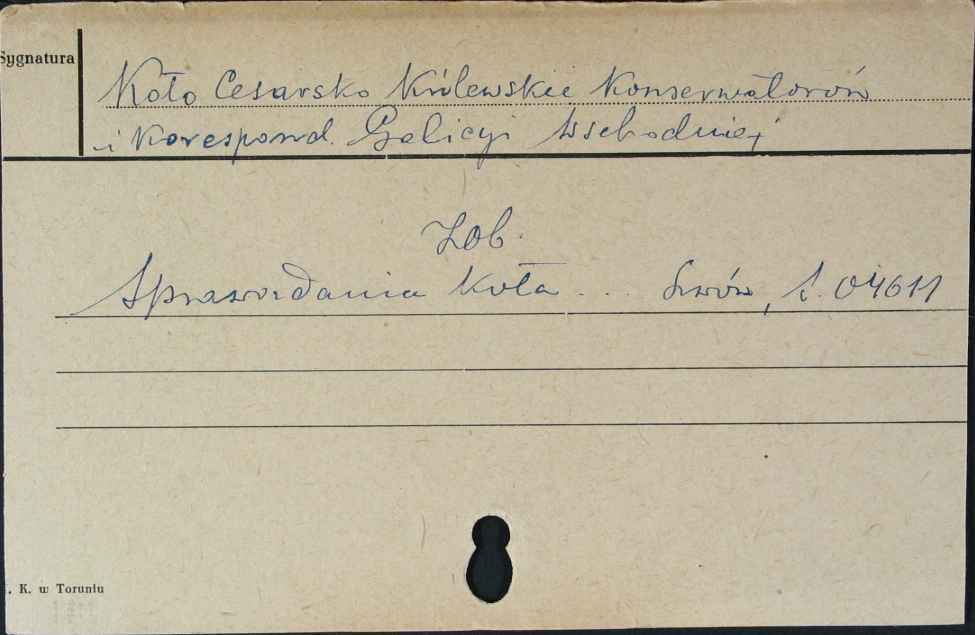 Sygnatura
Koło Cesarsko Królewskie Konserwatorów
i Korespond. Galicyi Wschodniej
Zob.
Sprawozdania Koła ... Lwów, S. 04611
. K. w Toruniu